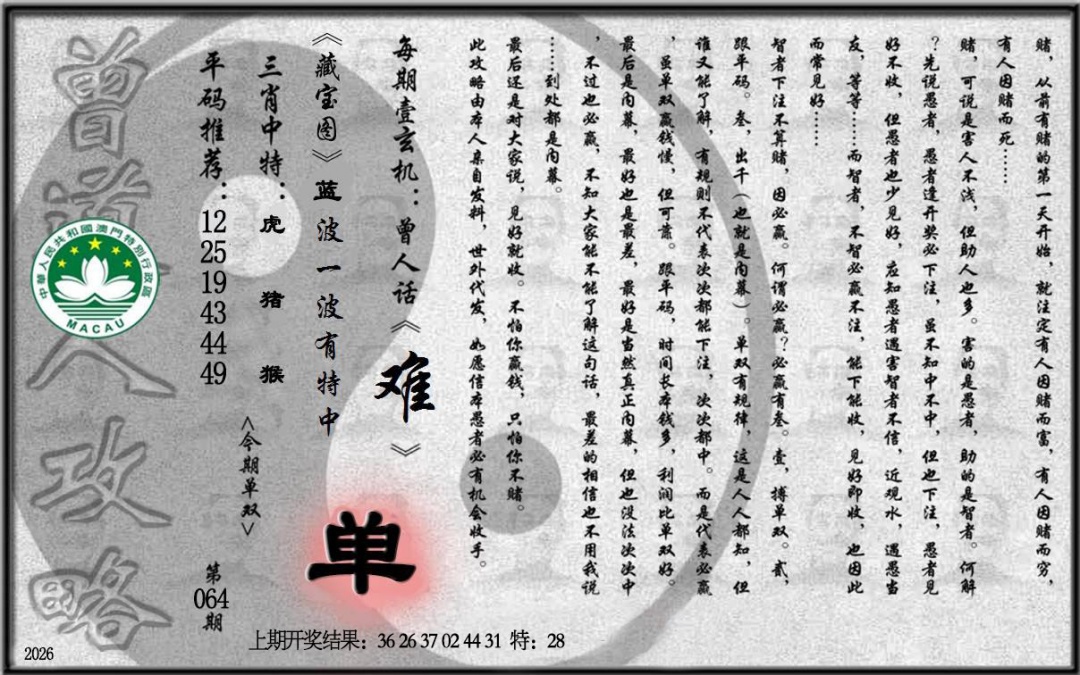 赌，从前有赌的第一天开始，就注定有人因赌而富，有人因赌而穷，
有人因赌而死……
赌，可说是害人不浅，但助人也多。害的是愚者，助的是智者。何解
？先说愚者，愚者逢开奖必下注，虽不知中不中，但也下注，愚者见
好不收，但愚者也少见好，应知愚者遇害智者不信，近观水，遇愚当
友，等等……而智者，不智必赢不注，能下能收，见好即收，也因此
而常见好……
智者下注不算赌，因必赢。何谓必赢？必赢有叁。壹，搏单双。贰，
跟单码。叁，出千（也就是内幕）。单双有规律，这是人人都知，但
谁又能了解，有规则不代表次次都能下注，次次都中。而是代表必赢
，虽单双赢钱慢，但可靠。跟单码，时间长本钱多，利润比单双好。
最后是内幕，最好也是最差，最好是当然真正内幕，但也没法次次中
，不过也必赢，不知大家能不能了解这句话，最差的相信也不用我说
……到处都是内幕。
最后还是对大家说，见好就收。不怕你赢钱，只怕你不赌。
此攻略由本人亲自发料，世外代发，如愿信本愚者必有机会收手。
每期壹玄机：曾人话《难》
《藏宝图》蓝波一波有特中
单
三肖中特：虎 猪 猴
<今期单双>
平码推荐：12 25 19 43 44 49
第064期
曾道人攻略
中華人民共和國澳門特別行政區
MACAU
上期开奖结果：36 26 37 02 44 31 特：28
2026